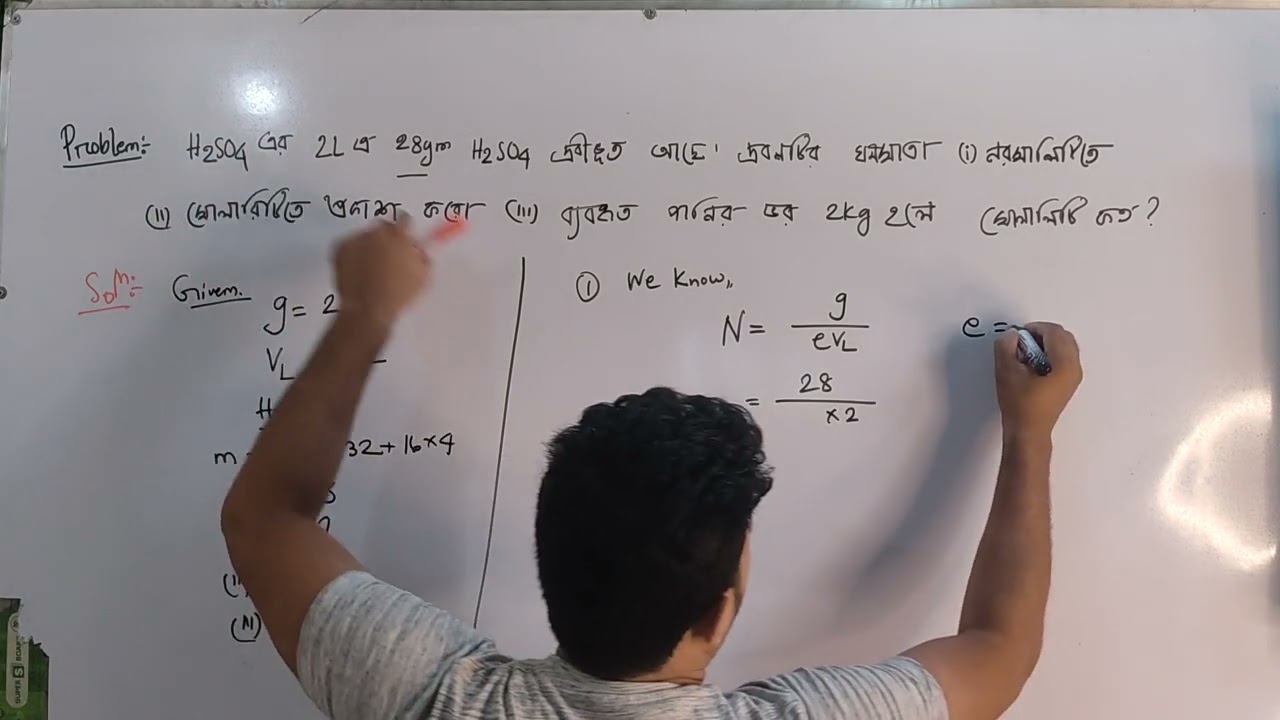 Problem:- H₂SO₄ এর 2L এ 28gm H₂SO₄ দ্রবীভূত আছে। দ্রবনটির ঘনমাত্রা (i) নরমালিটিতে
(ii) মোলারিটিতে প্রকাশ করো (iii) ব্যবহৃত পানির ভর 2kg হলে মোলালিটি কত?
Solⁿ:-
Given.
g = 2
V_L
H
m 32 + 16×4
① We Know,,
N = g / eV_L
e =
= 28 / ×2
SUPER S BOARD